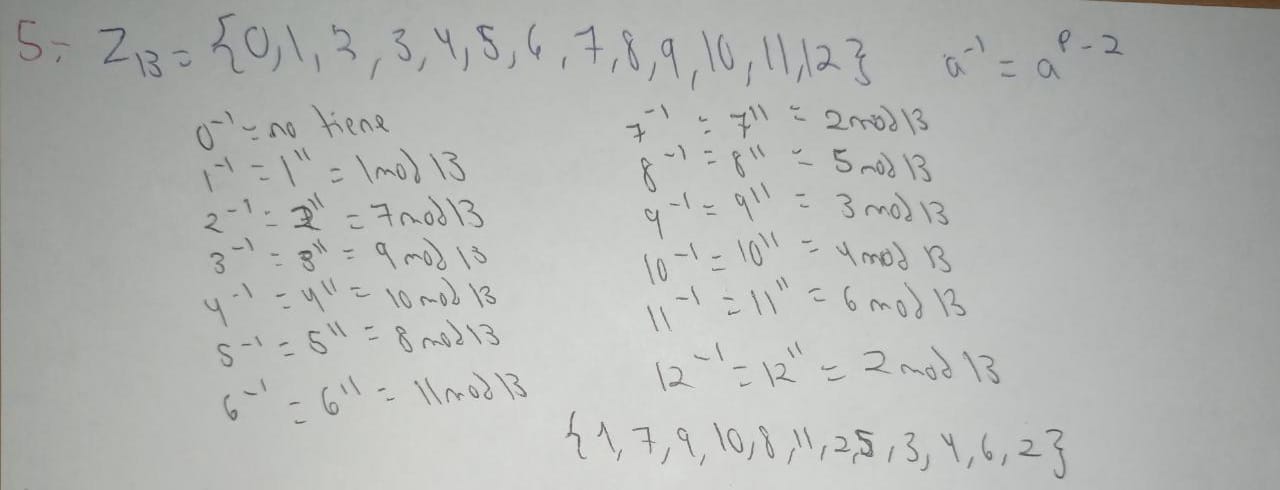 5.- Z₁₃ = {0, 1, 2, 3, 4, 5, 6, 7, 8, 9, 10, 11, 12} a⁻¹ = aᵖ⁻²
0⁻¹ = no tiene
1⁻¹ = 1¹¹ = 1 mod 13
2⁻¹ = 2¹¹ = 7 mod 13
3⁻¹ = 3¹¹ = 9 mod 13
4⁻¹ = 4¹¹ = 10 mod 13
5⁻¹ = 5¹¹ = 8 mod 13
6⁻¹ = 6¹¹ = 11 mod 13
7⁻¹ = 7¹¹ = 2 mod 13
8⁻¹ = 8¹¹ = 5 mod 13
9⁻¹ = 9¹¹ = 3 mod 13
10⁻¹ = 10¹¹ = 4 mod 13
11⁻¹ = 11¹¹ = 6 mod 13
12⁻¹ = 12¹¹ = 2 mod 13
{1, 7, 9, 10, 8, 11, 2, 5, 3, 4, 6, 2}